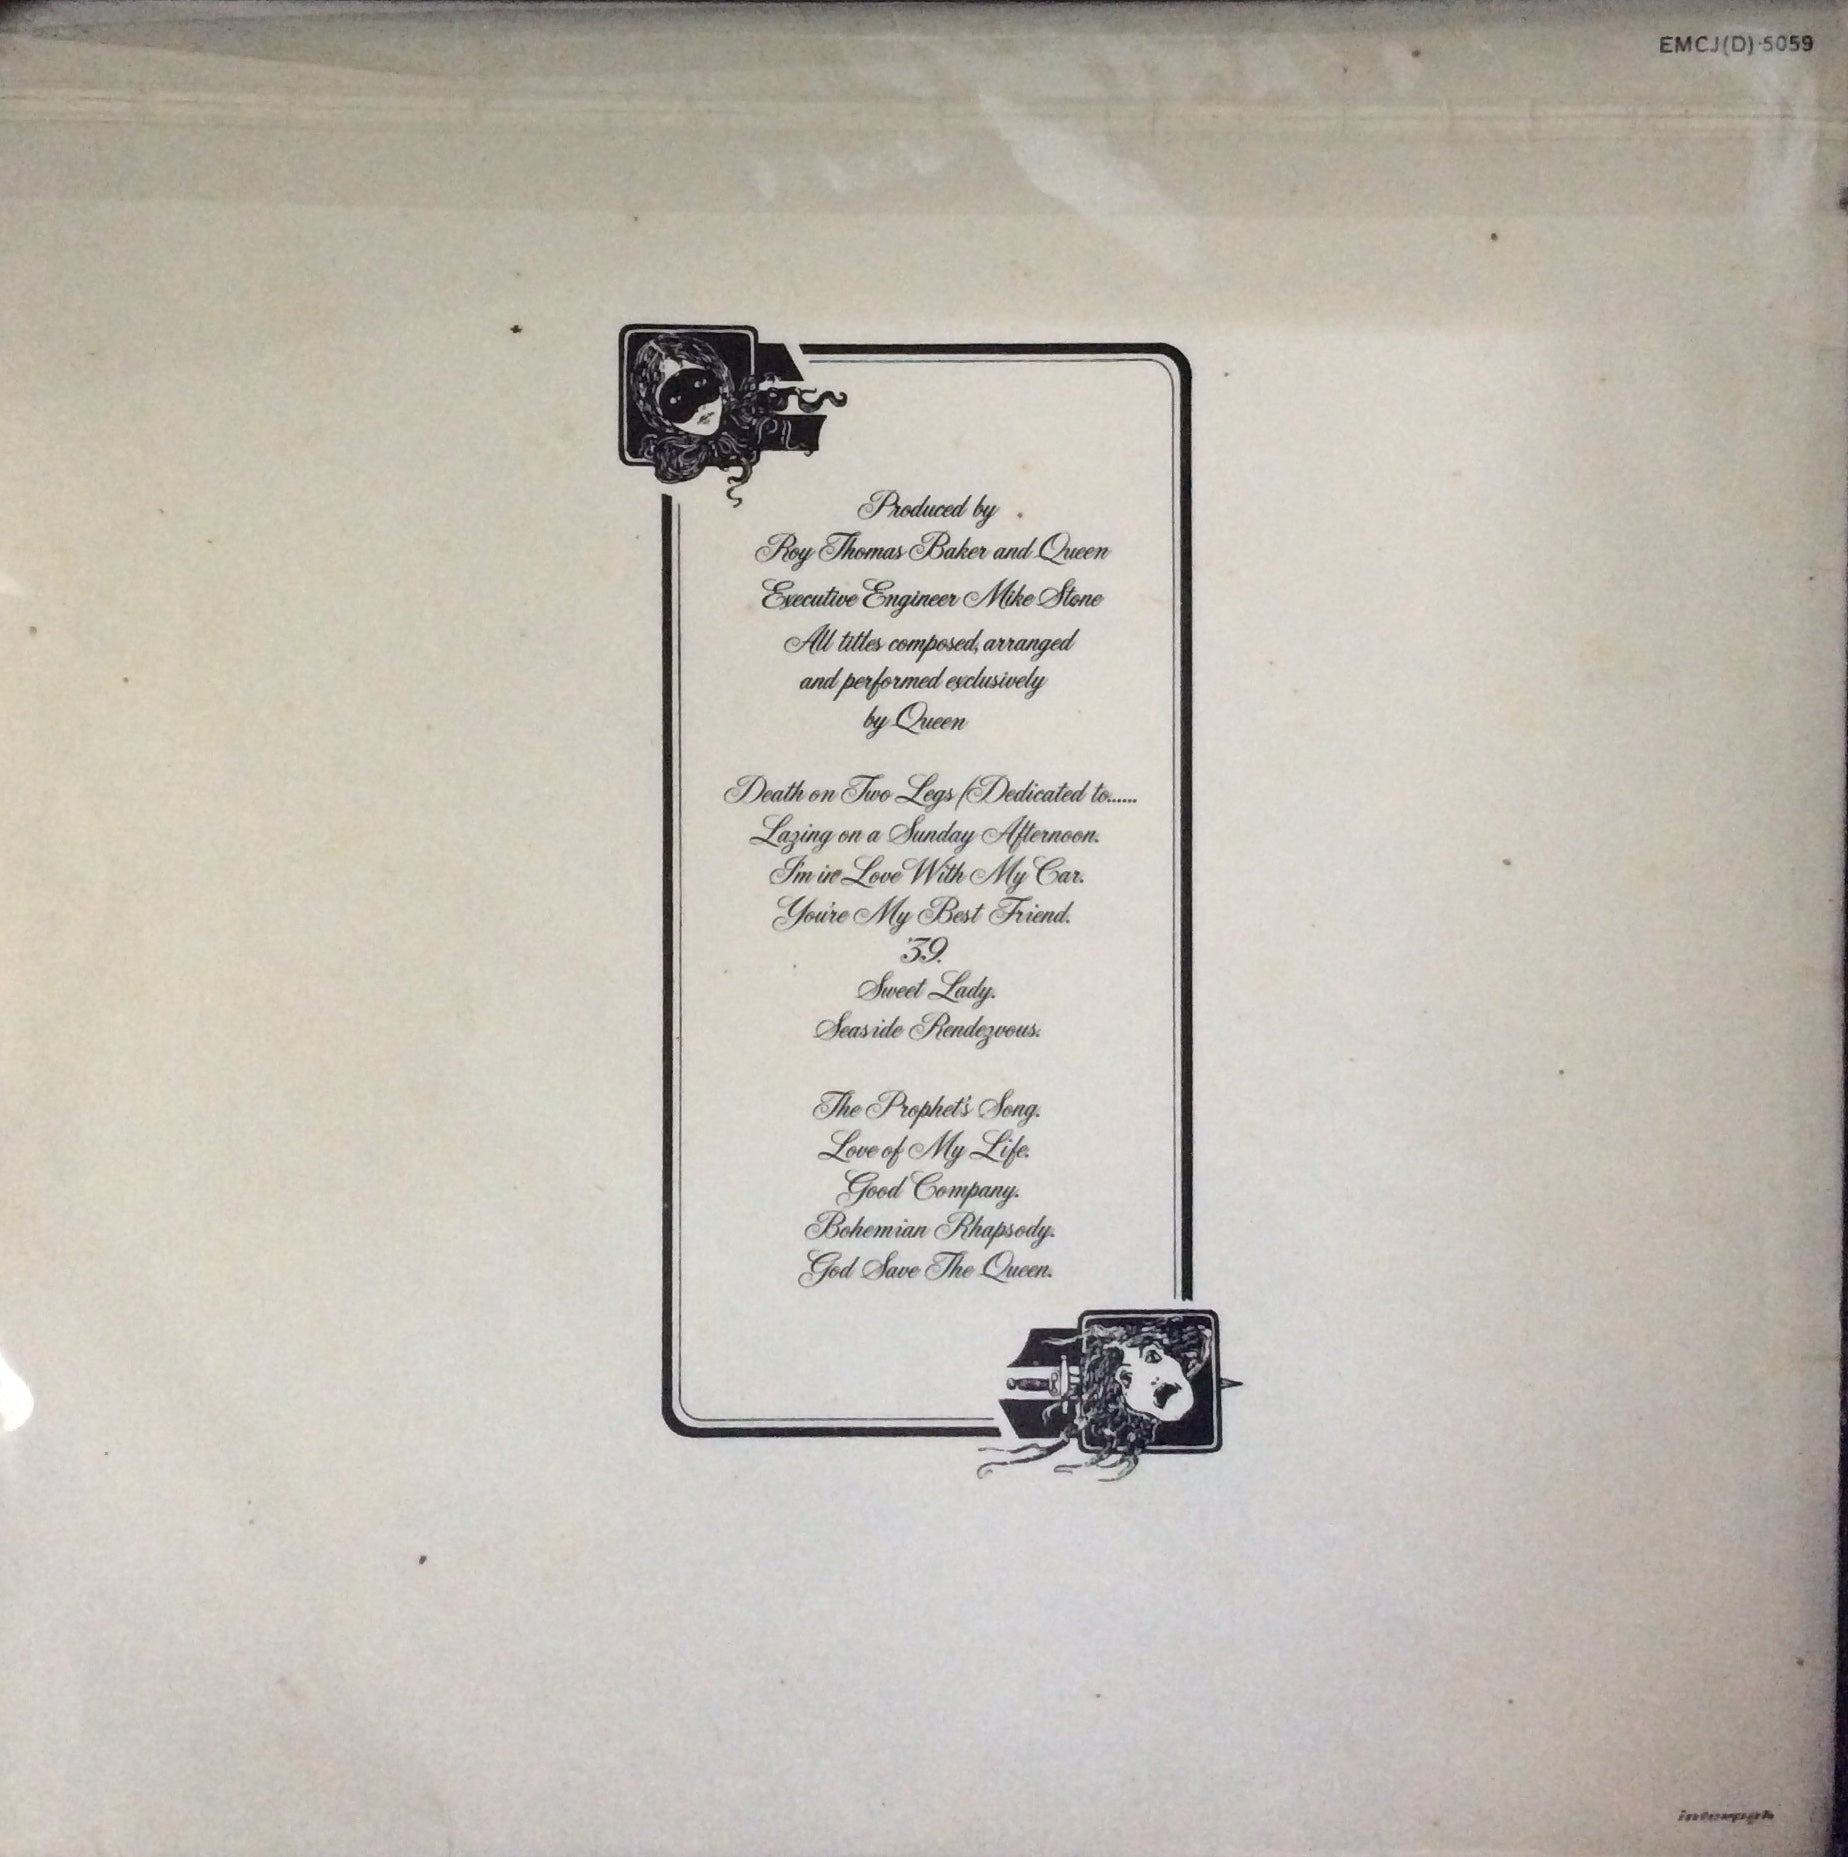 EMCJ(D) 5059
Produced by
Roy Thomas Baker and Queen
Executive Engineer Mike Stone
All titles composed, arranged
and performed exclusively
by Queen
Death on Two Legs (Dedicated to......
Lazing on a Sunday Afternoon.
I'm in Love With My Car.
You're My Best Friend.
'39.
Sweet Lady.
Seaside Rendezvous.
The Prophet's Song.
Love of My Life.
Good Company.
Bohemian Rhapsody.
God Save The Queen.